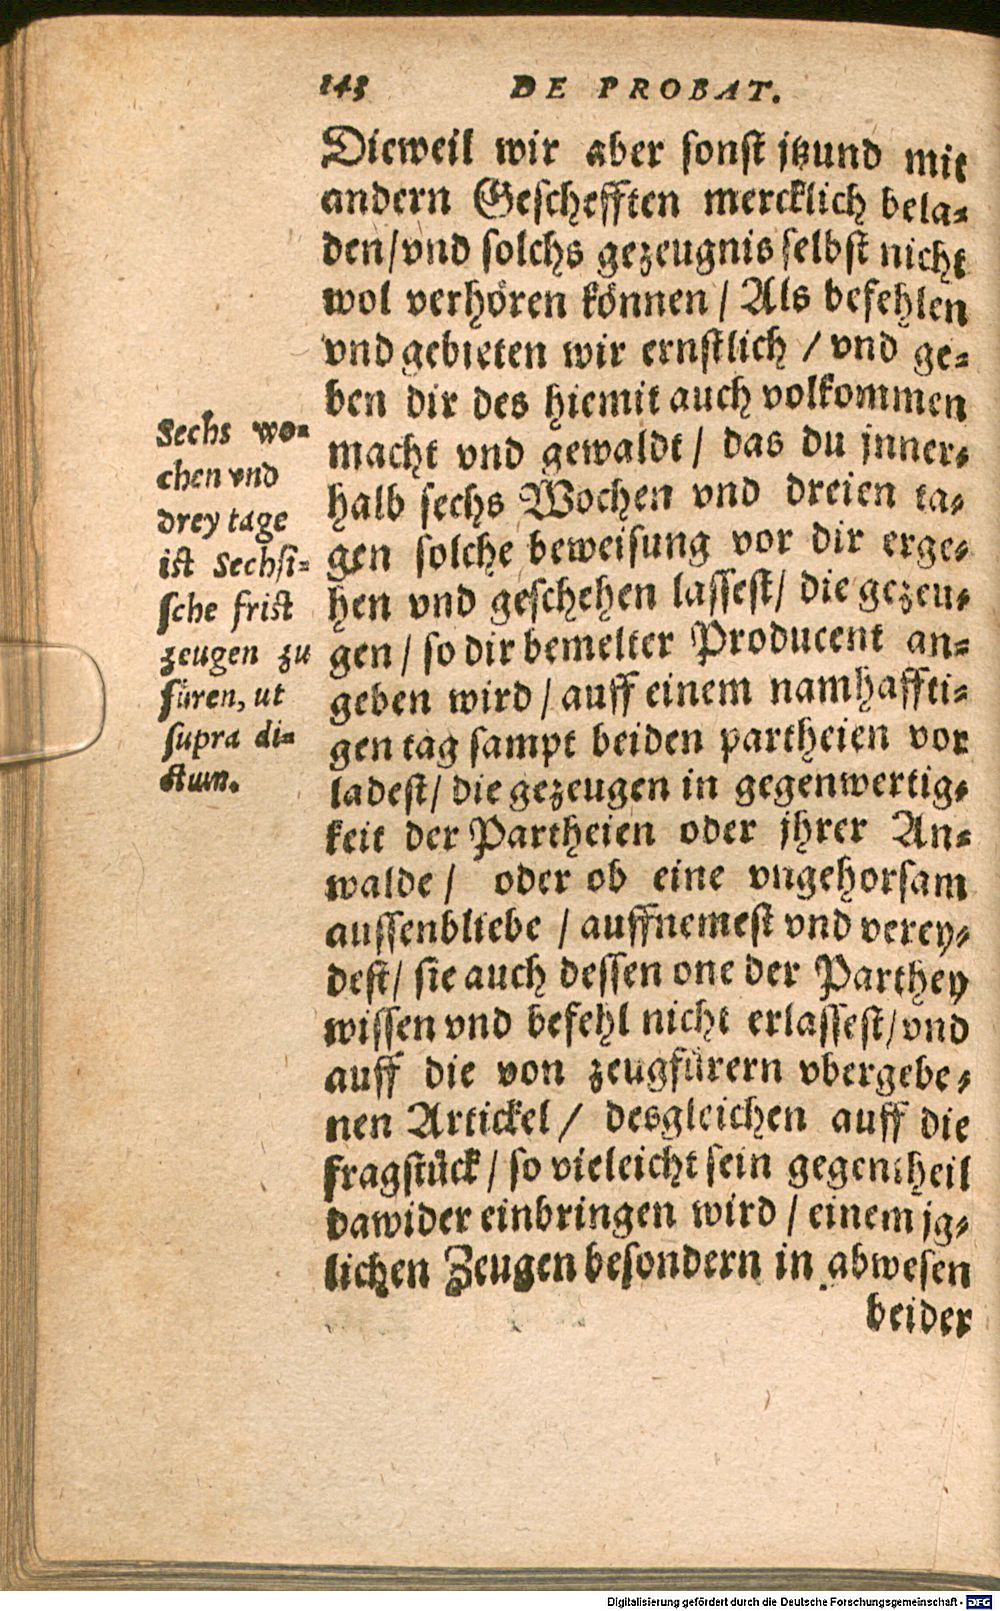 143 DE PROBAT.
Dieweil wir aber sonst jtzund mit
andern Geschefften mercklich bela-
den/vnd solchs gezeugnis selbst nicht
wol verhören können / Als befehlen
vnd gebieten wir ernstlich / vnd ge-
ben dir des hiemit auch volkommen
macht vnd gewaldt / das du jnner-
halb sechs Wochen vnd dreien ta-
gen solche beweisung vor dir erge-
hen vnd geschehen lassest/ die gezeu-
gen / so dir bemelter Producent an-
geben wird / auff einem namhaffti-
gen tag sampt beiden partheien vor
ladest/ die gezeugen in gegenwertig-
keit der Partheien oder jhrer An-
walde / oder ob eine vngehorsam
aussenbliebe / auffnemest vnd verey-
dest/ sie auch dessen one der Parthey
wissen vnd befehl nicht erlassest/vnd
auff die von zeugfürern vbergebe-
nen Artickel / desgleichen auff die
fragstück / so vieleicht sein gegentheil
dawider einbringen wird / einem jg-
lichen Zeugen besondern in abwesen
beider
Sechs wo-
chen vnd
drey tage
ist Sechsi-
sche frist
zeugen zu
füren, ut
supra di-
ctum.
Digitalisierung gefördert durch die Deutsche Forschungsgemeinschaft - DFG